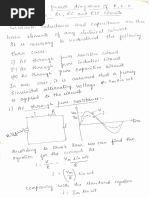 phasor diagrams of R, L, C
RL, RC and RLC circuits
Resistance inductance and capacitance are the
basic elements of any electrical circuit
It is necessary to understand the following
three cases.
1) AC through pure resistive circuit
2) AC through pure inductive circuit
3) AC through pure capacitive circuit
In each case, it is assumed that a purely
sinusoidal alternating voltage is applied
to the circuit
1) AC through pure resistance:-
According to ohms law, we can find the
equation for the current i as
i = Vm sin ωt
R
Comparing with the standard equation
i = Im sin ωt